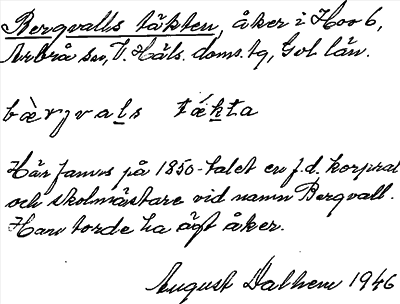 Bergvalls täkten, åker i Hov 6,
Arbrå sn, V. Häls. doms. tg, Gvl. län.
bæ̀rgvals tǽkta
Här fanns på 1850-talet en f.d. korpral
och skolmästare vid namn Bergvall.
Han torde ha ägt åker.
August Dalhem 1946